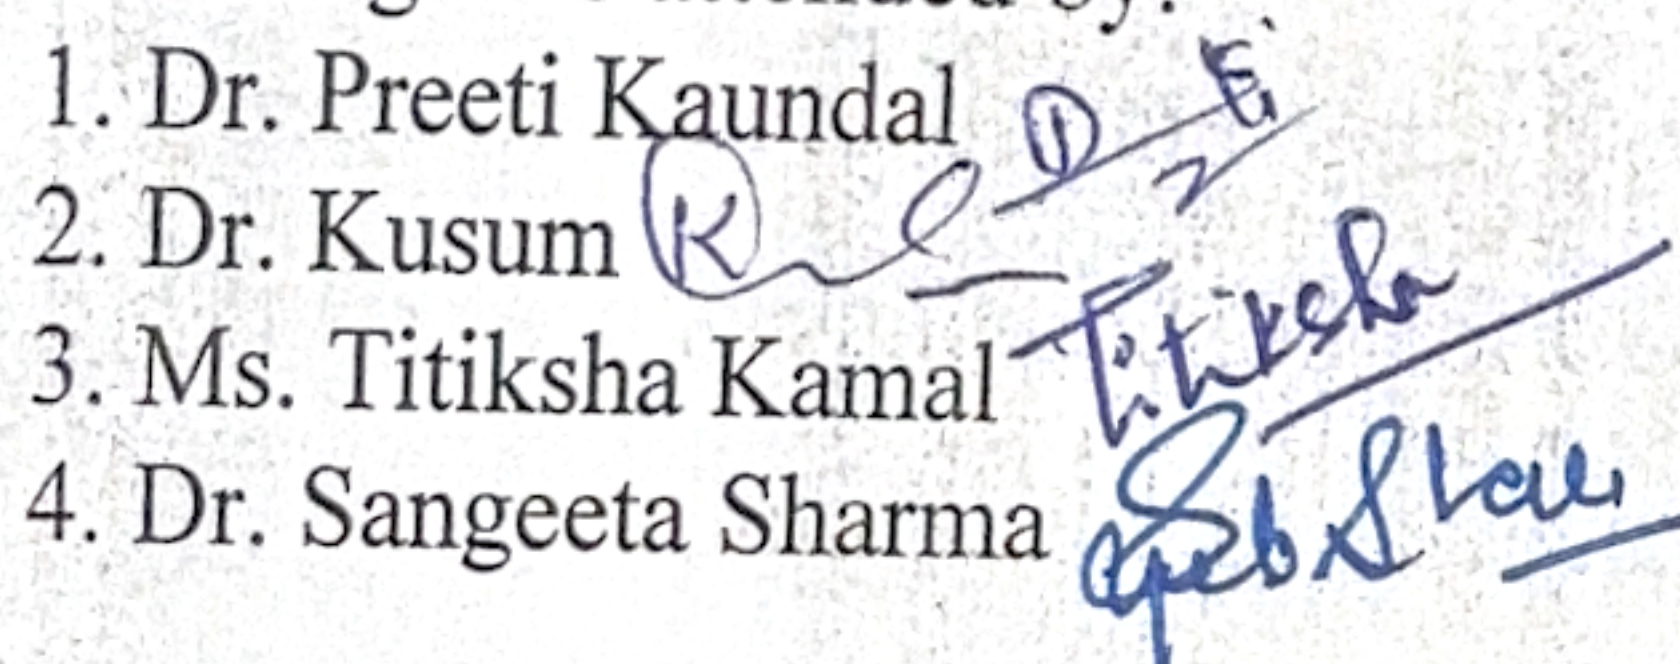 attended by:
1. Dr. Preeti Kaundal
2. Dr. Kusum
3. Ms. Titiksha Kamal Titiksha
4. Dr. Sangeeta Sharma